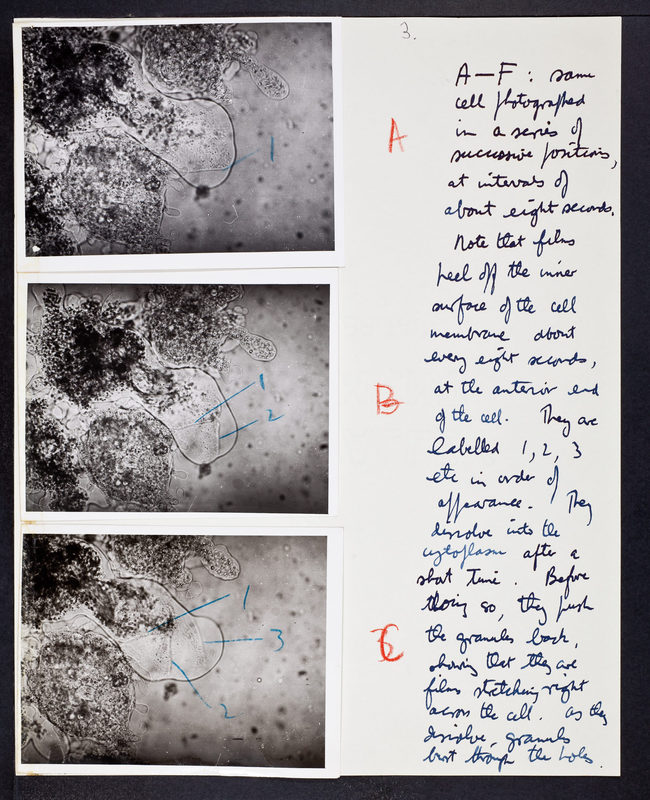 3.
A
A—F : same
cell photographed
in a series of
successive positions,
at intervals of
about eight seconds.
Note that films
peel off the inner
surface of the cell
membrane about
every eight seconds,
at the anterior end
of the cell. They are
labelled 1, 2, 3
etc in order of
appearance. They
dissolve into the
cytoplasm after a
short time. Before
doing so, they push
the granules back,
showing that they are
films stretching right
across the cell. As they
dissolve, granules
burst through the holes.
1
B
1
2
C
1
3
2